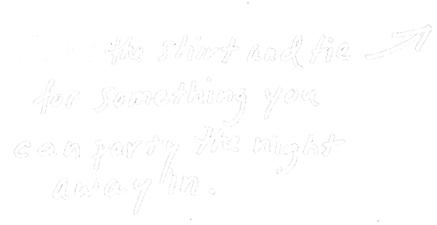 the shirt and tie
for something you
can party the night
away in.